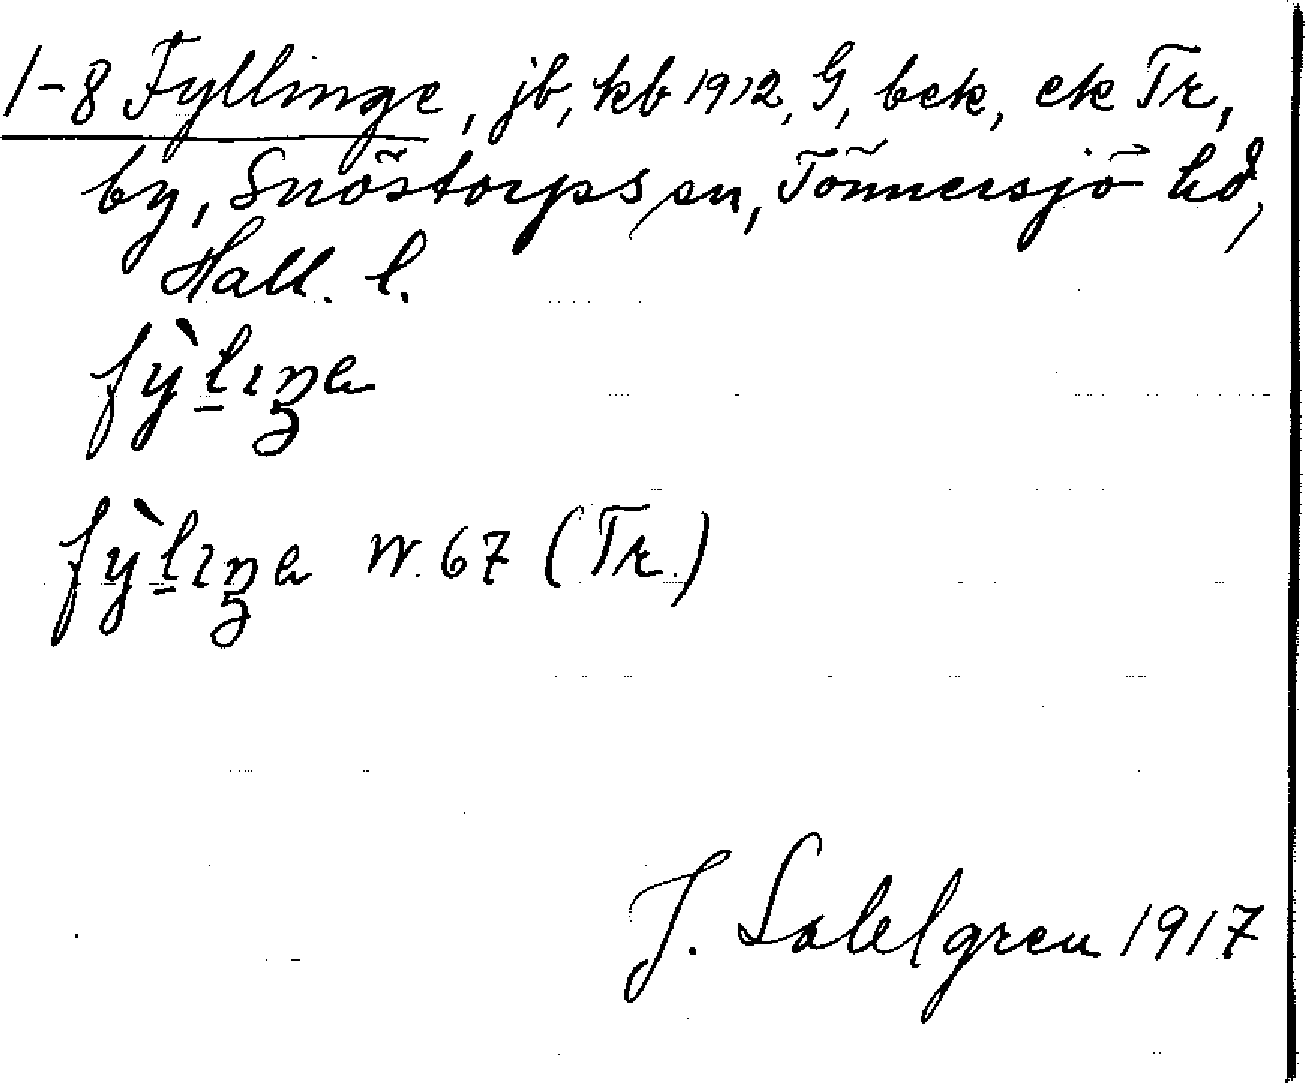 1-8 Fyllinge, jb, kb 1912, G, bek, ek Tr,
by, Snöstorps sn, Tönnersjö hd,
Hall. l.
fỳlɪŋa
fỳlɪŋa W. 67 (Tr.)
J. Sahlgren 1917